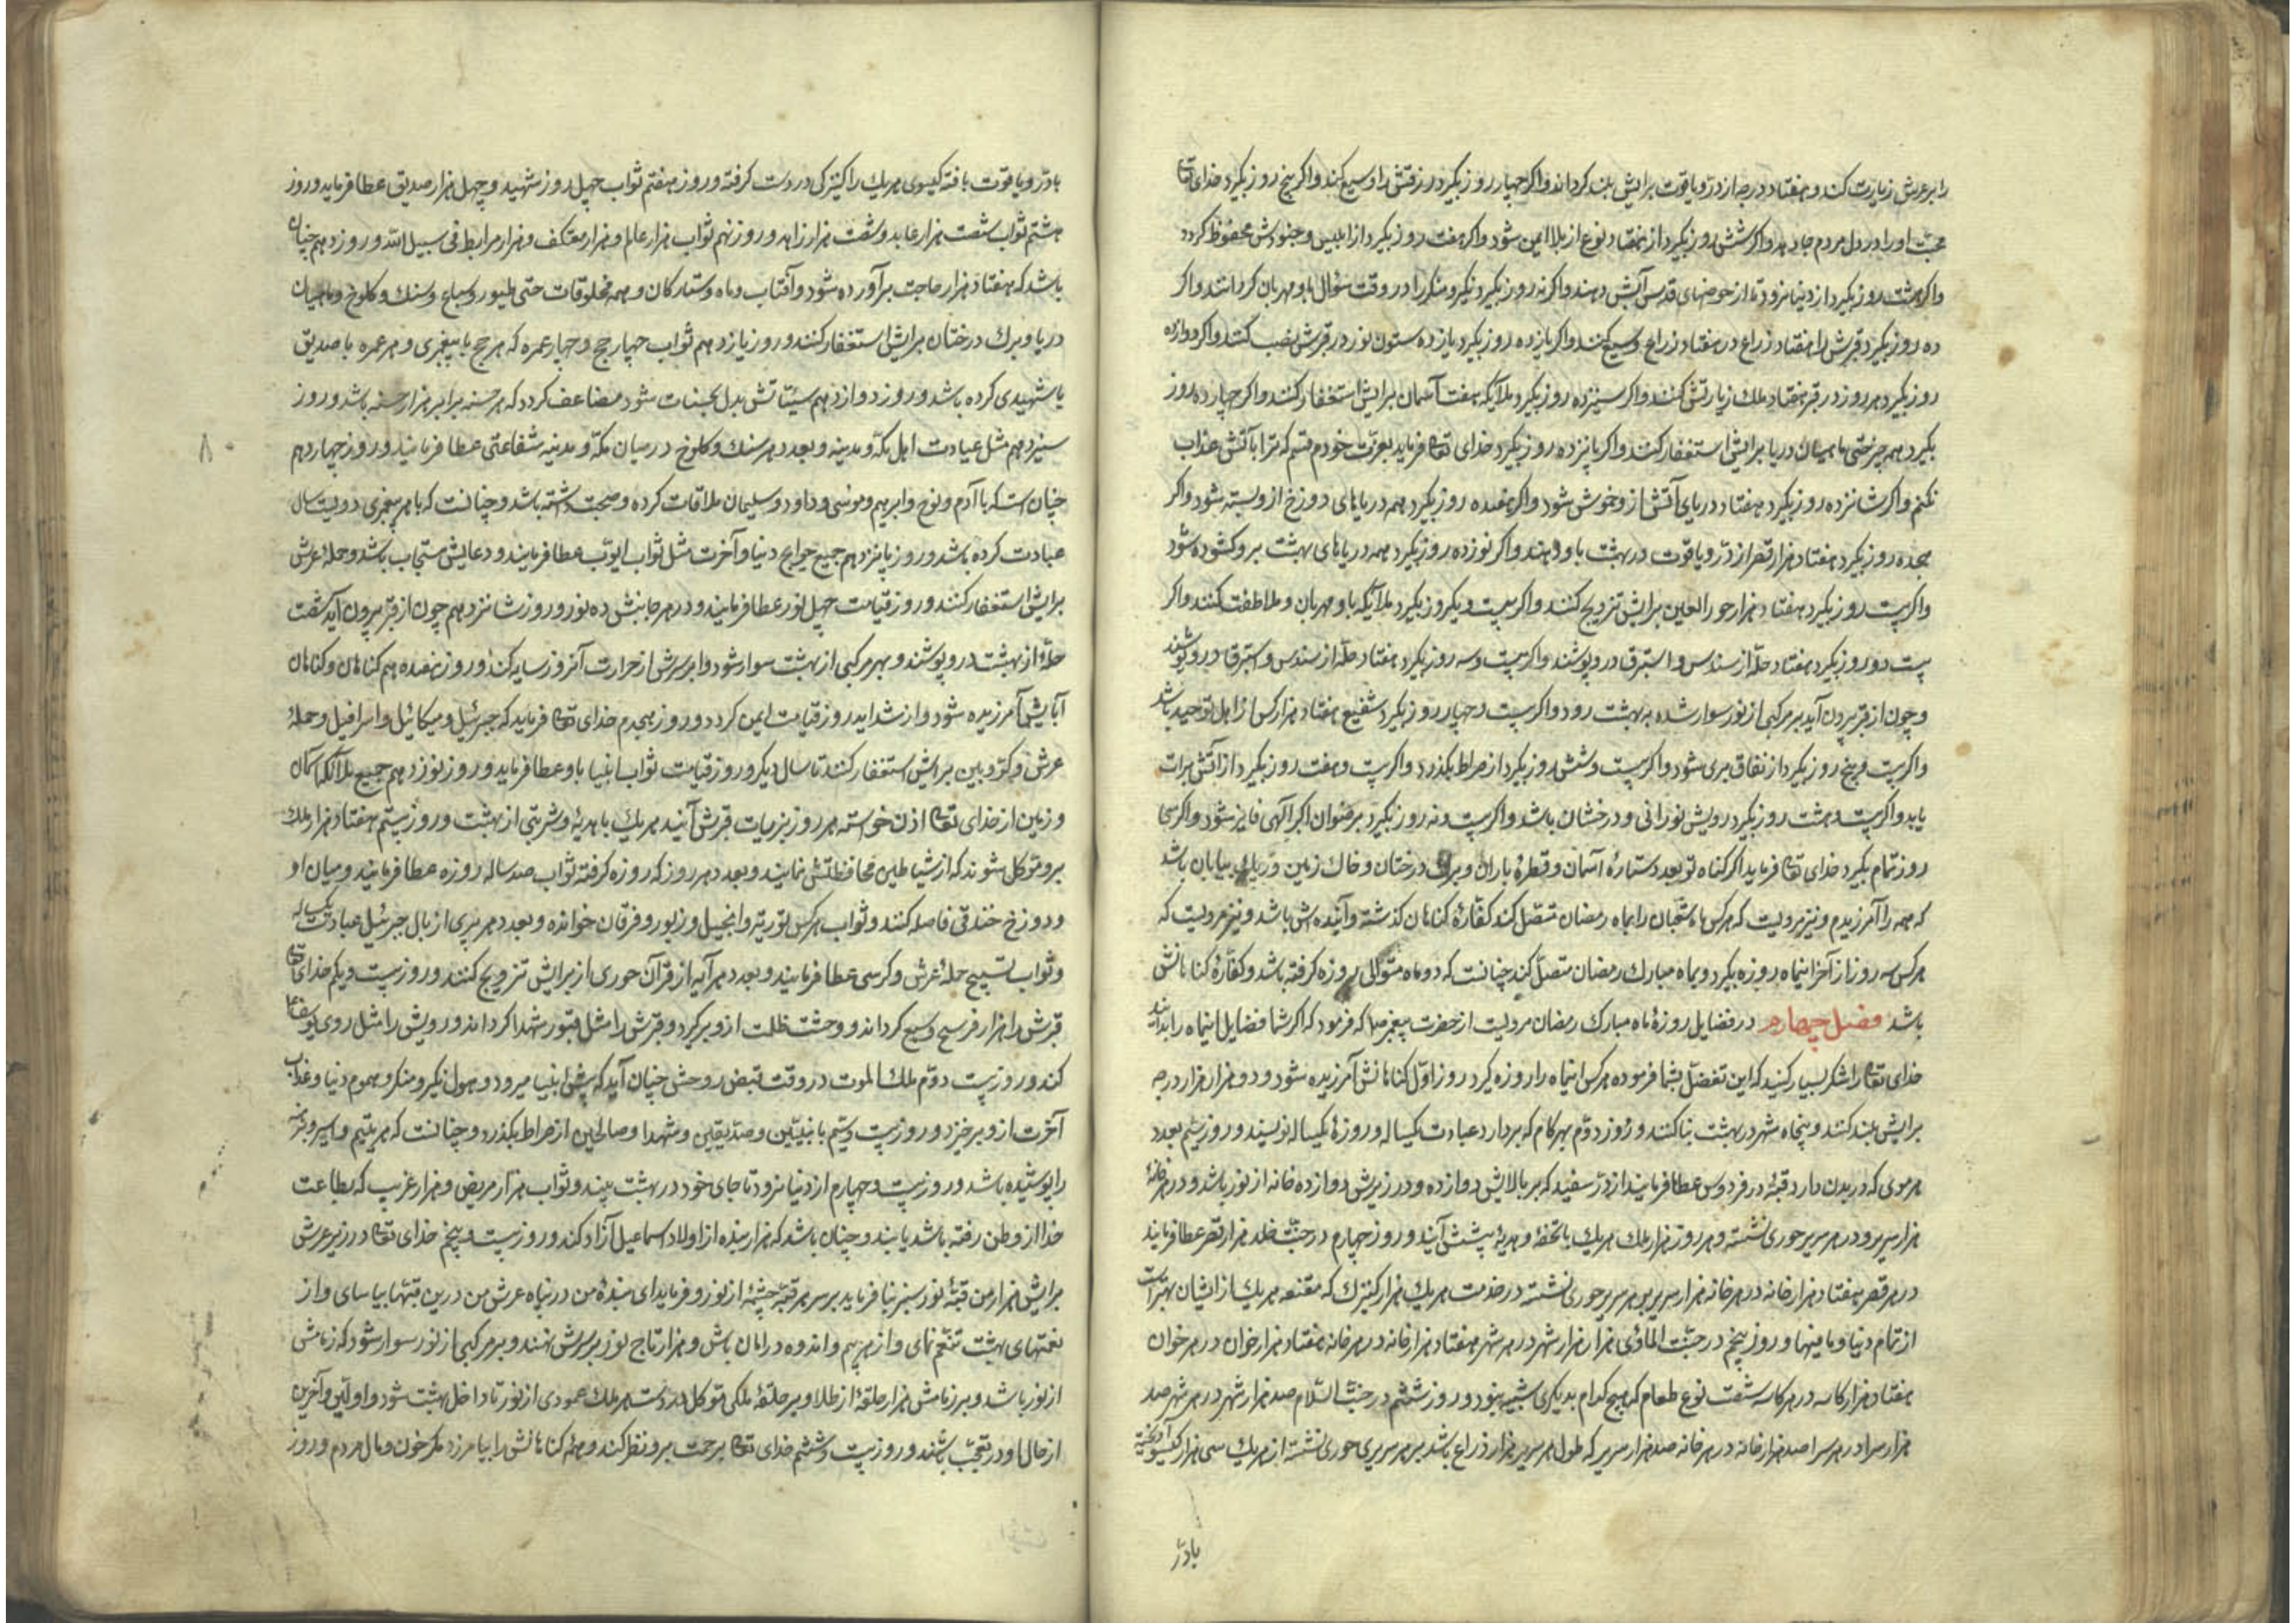 را بر عرش زیارت کند و هفتاد درجه از در و یاقوت برایش بلند کرداند و اکر چهار روز بکیرد در رزقش را وسیع کند و اکر پنج روز بکیرد خدای تعا
محبت او را در دل مردم جا دهد و اکر شش روز بکیرد از هفتاد نوع از بلا ایمن شود و اکر هفت روز بکیرد از ابلیس و جنودش محفوظ کردد
و اکر هشت روز بکیرد از دنیا نرود تا از حوضهای قدس آبش دهند و اکر نه روز بکیرد نکیر و منکر را در وقت سؤال باو مهربان کردانند و اکر
ده روز بکیرد قبرش را هفتاد ذراع در هفتاد ذراع وسیع کنند و اکر یازده روز بکیرد یازده ستون نور در قبرش نصب کنند و اکر دوازده
روز بکیرد هر روز در قبر هفتاد ملك زیارتش کنند و اکر سیزده روز بکیرد ملایکه هفت آسمان برایش استغفار کنند و اکر چهارده روز
بکیرد همه چیز حتی ماهیان دریا برایش استغفار کنند و اکر پانزده روز بکیرد خدای تعا فرماید بعزت خودم قسم که ترا بآتش عذاب
نکنم و اکر شانزده روز بکیرد هفتاد دریای آتش از و خوش شود و اکر هفده روز بکیرد همه درهای دوزخ از و بسته شود و اکر
هجده روز بکیرد هفتاد هزار قصر از در و یاقوت در بهشت باو دهند و اکر نوزده روز بکیرد همه درهای بهشت برو کشوده شود
و اکر بیست روز بکیرد هفتاد هزار حور العین برایش تزویج کنند و اکر بیست و یکروز بکیرد ملایکه باو مهربان و ملاطفت کنند و اکر
بیست دو روز بکیرد هفتاد حله از سندس و استبرق درو پوشند و اکر بیست و سه روز بکیرد هفتاد حله از سندس و استبرق درو پوشند
و چون از قبر بیرون آید بر مرکبی از نور سوار شده به بهشت رود و اکر بیست و چهار روز بکیرد شفیع هفتاد هزار کس از اهل توحید باشد
و اکر بیست و پنج روز بکیرد از نفاق بری شود و اکر بیست و شش روز بکیرد از صراط بکذرد و اکر بیست و هفت روز بکیرد از آتش برات
یابد و اکر بیست و هشت روز بکیرد رویش نورانی و درخشان باشد و اکر بیست و نه روز بکیرد برضوان اکبر الهی فایز شود و اکر سی
روز تمام بکیرد خدای تعا فرماید اکر کناه تو بعدد ستاره آسمان و قطره باران و برك درختان و خاك زمین و ریك بیابان باشد
که همه را آمرزیدم و نیز مرویست که هر کس ماه شعبان را بماه رمضان متصل کند کفاره کناهان کذشته و آینده اش باشد و نیز مرویست که
هر کس سه روز از آخر اینماه روزه بکیرد و بماه مبارك رمضان متصل کند چنانست که دو ماه متوالی روزه کرفته باشد و کفاره کناهانش
باشد فصل چهارم در فضایل روزه ماه مبارك رمضان مرویست از حضرت پیغمبر صلع که فرمود که اکر شما فضایل اینماه را بدانید
خدای تعا را شکر بسیار کنید که این تفضل بشما فرموده هر کس اینماه را روزه کیرد روز اول کناهانش آمرزیده شود و دو هزار هزار درجه
برایش بلند کنند و پنجاه شهر در بهشت بنا کنند و روز دوم بهر کام که بردارد عبادت یکساله و روزه یکساله نویسند و روز سیم بعدد
هر موی که در بدن دارد قبه در فردوس عطا فرمایند از در سفید که بر بالایش دوازده و در زیرش دوازده خانه از نور باشد و در هر خانه
هزار سریر و در هر سریر حوری نشسته و هر روز هزار ملك هر یك با تحفه و هدیه پیشش آیند و روز چهارم در جنت خلد هزار قصر عطا فرمایند
در هر قصر هفتاد هزار خانه در هر خانه هزار سریر بر هر سریر حوری نشسته در خدمت هر یك هزار کنیزك که مقنعه هر یك از ایشان بهتر است
از تمام دنیا و ما فیها و روز پنجم در جنت الماوی هزار هزار شهر در هر شهر هفتاد هزار خانه در هر خانه هفتاد هزار خوان در هر خوان
هفتاد هزار کاسه در هر کاسه شصت نوع طعام که هیچ کدام بدیکری شبیه نبود و روز ششم در جنت السلام صد هزار شهر در هر شهر صد
هزار سرا در هر سرا صد هزار خانه در هر خانه صد هزار سریر که طول هر سریر هزار ذراع باشد بر هر سریری حوری نشسته از هر یك سی هزار کیسو آویخته
با در
با در و یاقوت بافته کیسوی هر یك را کنیزکی در دست کرفته و روز هفتم ثواب چهل روز شهید و چهل هزار صدیق عطا فرماید و روز
هشتم ثواب شصت هزار عابد و شصت هزار زاهد و روز نهم ثواب هزار عالم و هزار معتکف و هزار مرابط فی سبیل الله و روز دهم چنان
باشد که هفتاد هزار حاجت برآورده شود و آفتاب و ماه و ستارکان و همه مخلوقات حتی طیور و سباع و سنك و کلوخ و ماهیان
دریا و برك درختان برایش استغفار کنند و روز یازدهم ثواب چهار حج و چهار عمره که هر حج با پیغمبری و هر عمره با صدیق
یا شهیدی کرده باشد و روز دوازدهم سیئاتش بدل بحسنات شود مضاعف کردد که هر حسنه برابر هزار حسنه باشد و روز
سیزدهم مثل عبادت اهل مکه و مدینه و بعدد هر سنك و کلوخ در میان مکه و مدینه شفاعتی عطا فرمایند و روز چهاردهم
۸۰
چنان است که با آدم و نوح و ابرهیم و موسی و داود و سلیمان ملاقات کرده و صحبت داشته باشد و چنانست که با هر پیغمبری دویست سال
عبادت کرده باشد و روز پانزدهم جمیع حوایج دنیا و آخرت مثل ثواب ایوب عطا فرمایند و دعایش مستجاب باشد و حمله عرش
برایش استغفار کنند و روز قیامت چهل نور عطا فرمایند و در هر جانبش ده نور و روز شانزدهم چون از قبر بیرون آید شصت
حله از بهشت درو پوشند و بهر مرکبی از بهشت سوار شود و ابر بر سرش از حرارت آنروز سایه کند و روز هفدهم کناهان و کناهان
آبایش آمرزیده شود و از شداید روز قیامت ایمن کردد و روز هجدهم خدای تعا فرماید که جبرئیل و میکائیل و اسرافیل و حمله
عرش و کروبین برایش استغفار کنند تا سال دیکر و روز قیامت ثواب انبیا باو عطا فرماید و روز نوزدهم جمیع ملائکه آسمان
و زمین از خدای تعا اذن خواسته هر روز بزیارت قبرش آیند هر یك با هدیه و شربتی از بهشت و روز بیستم هفتاد هزار ملك
برو موکل شوند که از شیاطین محافظتش نمایند و بعدد هر روز که روزه کرفته ثواب صد ساله روزه عطا فرمایند و میان او
و دوزخ خندقی فاصله کنند و ثواب هر کس توریة و انجیل و زبور و فرقان خوانده و بعدد هر پری از بال جبرئیل عبادت یکساله
و ثواب تسبیح حمله عرش و کرسی عطا فرمایند و بعدد هر آیه از قرآن حوری از برایش تزویج کنند و روز بیست و یکم خدای تعا
قبرش را هزار فرسخ وسیع کرداند و وحشت ظلمت ازو بر کیرد و قبرش را مثل قبور شهدا کرداند و رویش را مثل روی یوسف
کند و روز بیست دوم ملك الموت در وقت قبض روحش چنان آید که پیش انبیا میرود و هول نکیر و منکر و هموم دنیا و عذاب
آخرت ازو برخیزد و روز بیست و سیم با نبیین و صدیقین و شهدا و صالحین از صراط بکذرد و چنانست که هر یتیم و اسیر و برهنه
را پوشیده باشد و روز بیست و چهارم از دنیا نرود تا جای خود در بهشت بیند و ثواب هزار مریض و هزار غریب که بطاعت
خدا از وطن رفته باشد یابند و چنان باشد که هزار بنده از اولاد اسماعیل آزاد کند و روز بیست و پنجم خدای تعا در زیر عرش
برایش هزار من قبه نور سبز بنا فرماید بر سر هر قبه چشمه از نور و فرماید ای بنده من در پناه عرش من درین قبها بیاسای و از
نعمتهای بهشت تنعم نمای و از هر بیم و اندوه در امان باش و هزار تاج نور بر سرش نهند و بر مرکبی از نور سوار شود که زمامش
از نور باشد و بر زمامش هزار حلقه از طلا و بر حلقه ملکی موکل در دست هر ملك عمودی از نور تا داخل بهشت شود و اولین و آخرین
از حال او در تعجب باشند و روز بیست و ششم خدای تعا برحمت برو نظر کند و همه کناهانش را بیامرزد مکر خون و مال مردم و روز